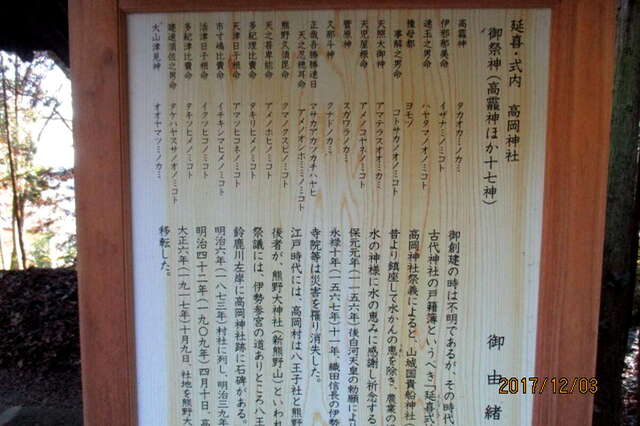 延喜・式内 高岡神社
御祭神(高龗神ほか十七神)
高龗神 タカオカミノカミ
伊邪那美命 イザナミノミコト
速玉之男命 ハヤタマノオノミコト
豫母都 ヨモツ
事解之男命 コトサカノオノミコト
天照大御神 アマテラスオオミカミ
天児屋根命 アメノコヤネノミコト
菅原神 スガワラノカミ
久那斗神 クナドノカミ
正哉吾勝勝速日 マサカアカツカチハヤヒ
天之忍穂耳命 アメノオシホミミノミコト
熊野久須毘命 クマノクスビノミコト
天之菩卑能命 アメノホヒノミコト
多紀理比賣命 タキリヒメノミコト
天津日子根命 アマツヒコネノミコト
市寸嶋比賣命 イチキシマヒメノミコト
活津日子根命 イクツヒコノミコト
多紀津比賣命 タキツヒメノミコト
建速須佐之男命 タケハヤスサノオノミコト
大山津見神 オオヤマツミノカミ
御由緒
御創建の時は不明であるが、その時代
古代神社の戸籍簿というべき「延喜式
高岡神社祭義によると、山城国貴船神社(
昔より鎮座して水かんの恵を除き、農業の
水の神様に水の恵みに感謝し祈念する
保元元年(一一五六年)後白河天皇の勅願により
永禄十年(一五六七年)十一年 織田信長の伊勢
寺院等は災害を罹り消失した。
江戸時代には、高岡村は八王子社と熊野
後者が、熊野大神社(新熊野山)といわれ
祭議には、伊勢参宮の道ありところ八王
鈴鹿川左岸に高岡神社跡に石碑がある。
明治六年(一八七三年)村社に列し、明治三九年
明治四十二年(一九〇九年)四月十日、高
大正六年(一九一七年)十月九日、社地を熊野大
移転した。
2017/12/03